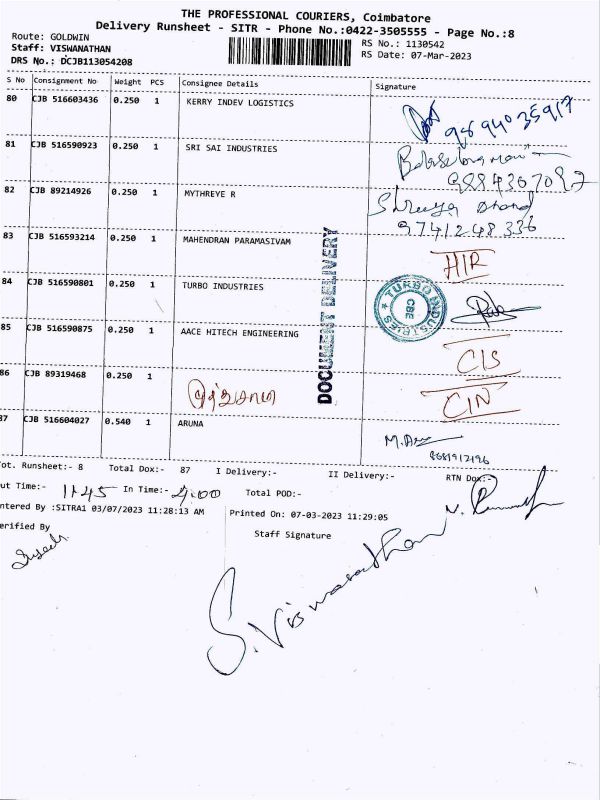 THE PROFESSIONAL COURIERS, Coimbatore
Delivery Runsheet - SITR - Phone No.:0422-3505555 - Page No.:8
Route: GOLDWIN
RS No.: 1130542
Staff: VISWANATHAN
RS Date: 07-Mar-2023
DRS No.: DCJB113054208
S No Consignment No Weight PCS Consignee Details Signature
80 CJB 516603436 0.250 1 KERRY INDEV LOGISTICS
81 CJB 516590923 0.250 1 SRI SAI INDUSTRIES
9884307092
82 CJB 89214926 0.250 1 MYTHREYE R
9741248336
83 CJB 516593214 0.250 1 MAHENDRAN PARAMASIVAM
HIR
84 CJB 516590801 0.250 1 TURBO INDUSTRIES
TURBO INDUSTRIES
CBE
DOCUMENT DELIVERY
85 CJB 516590875 0.250 1 AACE HITECH ENGINEERING
CIS
86 CJB 89319468 0.250 1
CIN
87 CJB 516604027 0.540 1 ARUNA
ot. Runsheet:- 8 Total Dox:- 87 I Delivery:- II Delivery:- RTN Dox:-
ut Time:- 11.45 In Time:- 4.00 Total POD:-
ntered By :SITRA1 03/07/2023 11:28:13 AM Printed On: 07-03-2023 11:29:05
erified By Staff Signature
S. Viswanathan